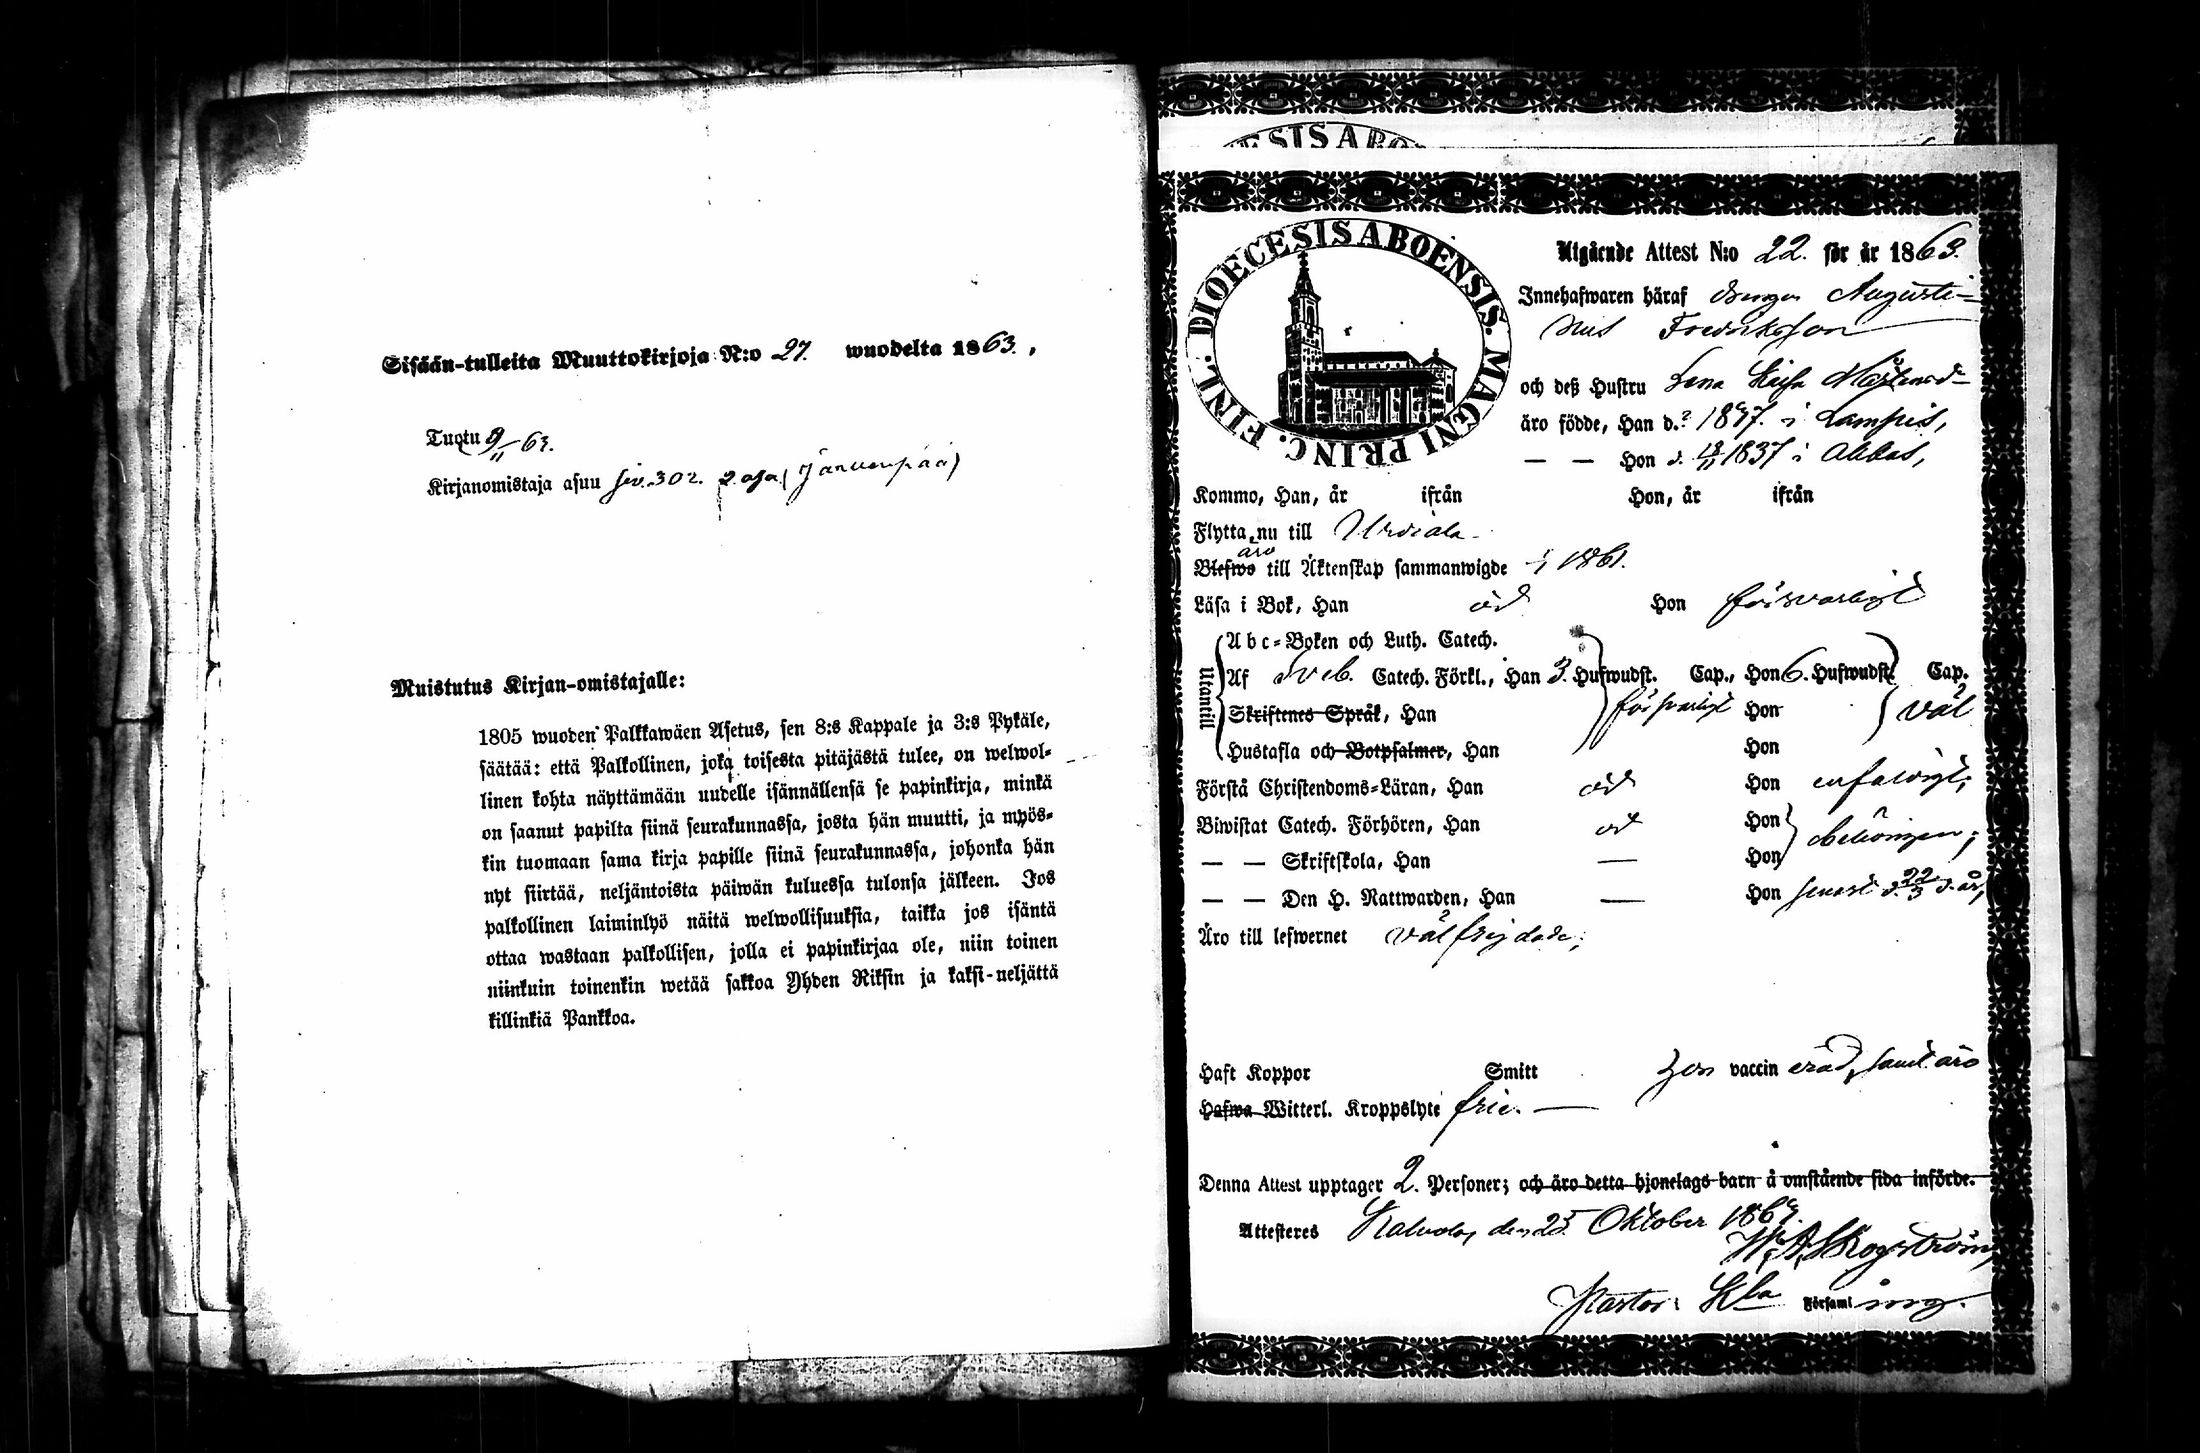 Sisään-tulleita Muuttokirjoja N:o 27. wuodelta 1863.
Tuotu 9/11 63.
Kirjanomistaja asuu siv. 302. 2 osa (Järvenpää)
Muistutus Kirjan-omistajalle:
1805 wuoden Palkkawäen Asetus, sen 8:s Kappale ja 3:s Pykäle,
säätää: että Palkollinen, joka toisesta pitäjästä tulee, on welwol-
linen kohta näyttämään uudelle isännällensä se papinkirja, minkä
on saanut papilta siinä seurakunnassa, josta hän muutti, ja myös-
kin tuomaan sama kirja papille siinä seurakunnassa, johonka hän
nyt siirtää, neljäntoista päiwän kuluessa tulonsa jälkeen. Jos
palkollinen laiminlyö näitä welwollisuuksia, taikka jos isäntä
ottaa wastaan palkollisen, jolla ei papinkirjaa ole, niin toinen
niinkuin toinenkin wetää sakkoa Yhden Riksin ja kaksi-neljättä
killinkiä Pankkoa.
ESIS ABO
DIOECESIS ABOENSIS. MAGNI PRINC. FINL.
Utgående Attest N:o 22. för år 1863.
Innehafwaren häraf Augusti-
nus Fredriksson
och deß Hustru Lena Kaisa
äro födde, Han d. 1837. i Lampis,
— — Hon d. 1837 i Akkas,
Kommo, Han, år ifrån Hon, år ifrån
Flytta nu till Urdiala
äro
Blefwo till Äktenskap sammanwigde 1861.
Läsa i Bok, Han Hon försvarligt
Utantill
Abc-Boken och Luth. Catech.
Af Sveb. Catech. Förkl., Han 3. Hufwudst. Cap., Hon 6. Hufwudst. Cap.
Skriftenes Språk, Han försvarligt Hon väl
Hustafla och Botpsalmer, Han Hon
Förstå Christendoms-Läran, Han Hon enfaldigt;
Biwistat Catech. Förhören, Han Hon behörigen;
— — Skriftskola, Han — Hon
— — Den H. Nattwarden, Han — Hon senast d. 22/3 d. år,
Äro till lefwernet välfrejdade;
Haft Koppor Smitt Hon vaccinerad, samt äro
Hafwa Witterl. Kroppslyte frie. —
Denna Attest upptager 2. Personer; och äro detta hjonelags barn å omstående sida införde.
Attesteres Kalvola, den 25 Oktober 1863.
W. A. Skogström
Pastor i Kla Församling.